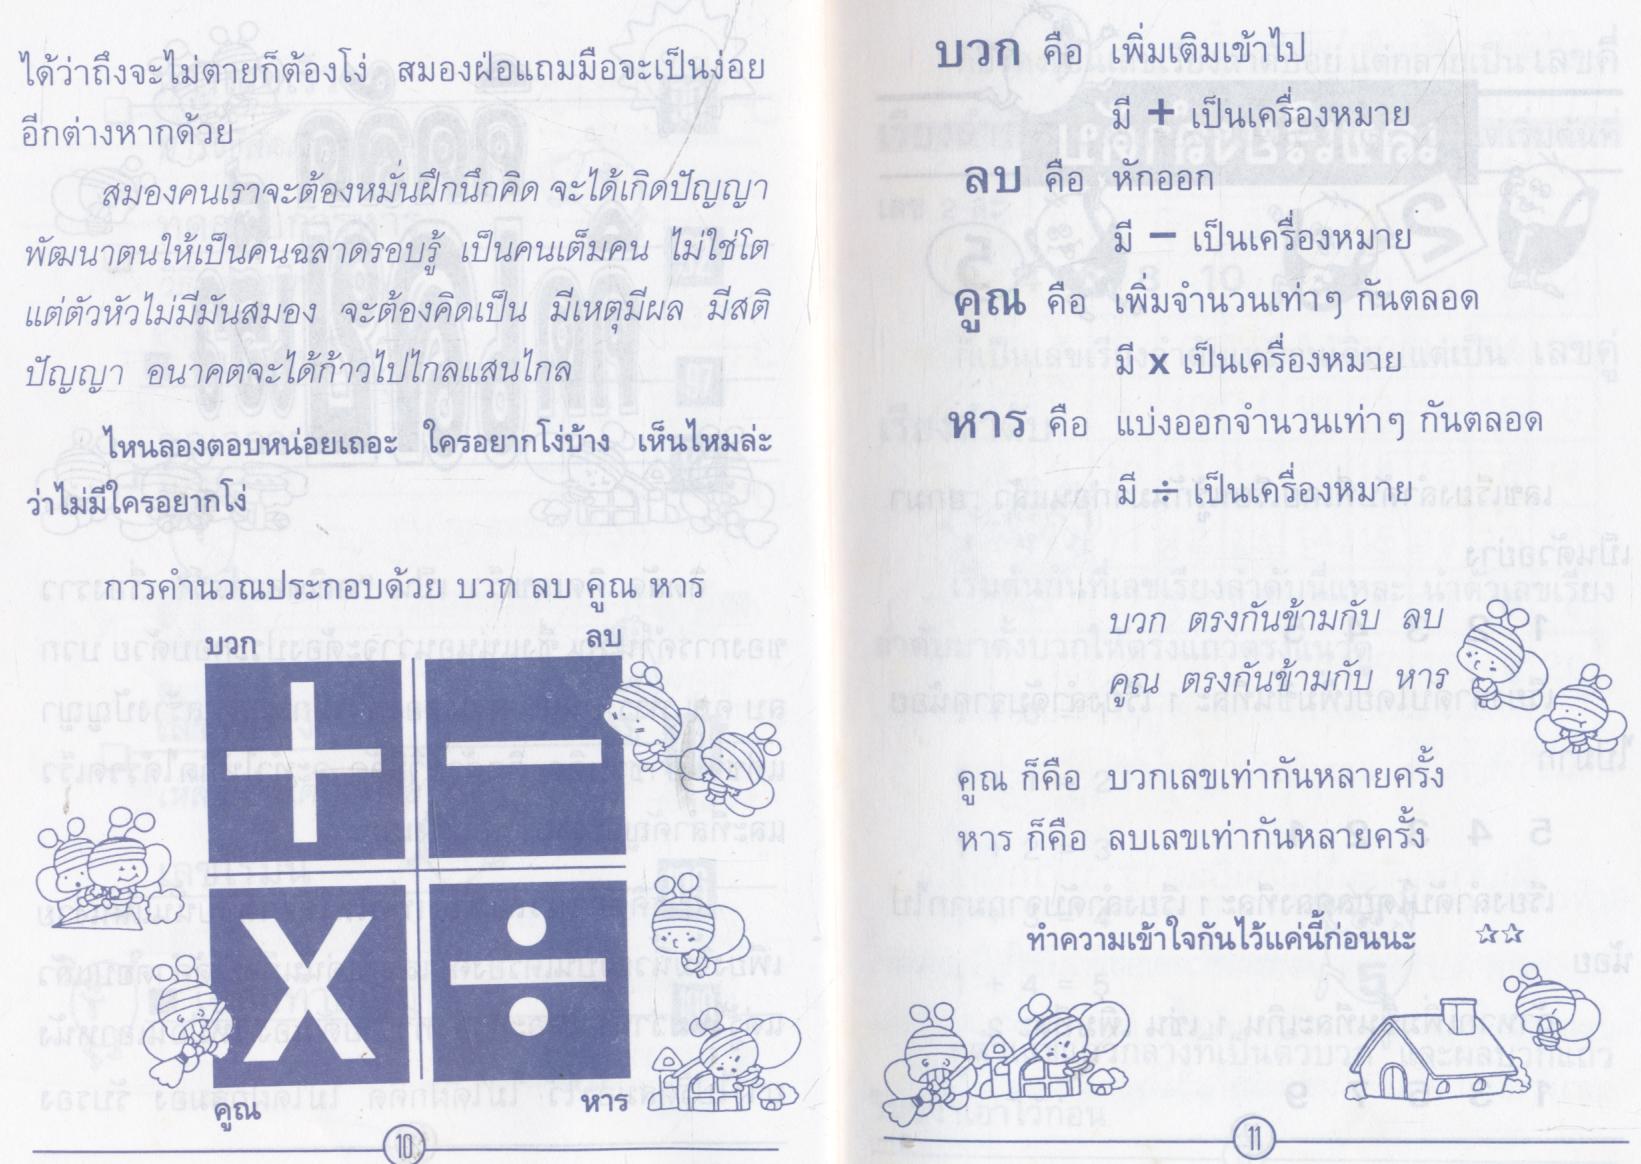 ได้ว่าถึงจะไม่ตายก็ต้องโง่ สมองฝ่อแถมมือจะเป็นง่อย
อีกต่างหากด้วย
สมองคนเราจะต้องหมั่นฝึกนึกคิด จะได้เกิดปัญญา
พัฒนาตนให้เป็นคนฉลาดรอบรู้ เป็นคนเต็มคน ไม่ใช่โต
แต่ตัวหัวไม่มีมันสมอง จะต้องคิดเป็น มีเหตุมีผล มีสติ
ปัญญา อนาคตจะได้ก้าวไปไกลแสนไกล
ไหนลองตอบหน่อยเถอะ ใครอยากโง่บ้าง เห็นไหมล่ะ
ว่าไม่มีใครอยากโง่
การคำนวณประกอบด้วย บวก ลบ คูณ หาร
บวก ลบ
+ −
x ÷
คูณ หาร
10
บวก คือ เพิ่มเติมเข้าไป
มี + เป็นเครื่องหมาย
ลบ คือ หักออก
มี − เป็นเครื่องหมาย
คูณ คือ เพิ่มจำนวนเท่าๆ กันตลอด
มี x เป็นเครื่องหมาย
หาร คือ แบ่งออกจำนวนเท่าๆ กันตลอด
มี ÷ เป็นเครื่องหมาย
บวก ตรงกันข้ามกับ ลบ
คูณ ตรงกันข้ามกับ หาร
คูณ ก็คือ บวกเลขเท่ากันหลายครั้ง
หาร ก็คือ ลบเลขเท่ากันหลายครั้ง
ทำความเข้าใจกันไว้แค่นี้ก่อนนะ ☆☆
11